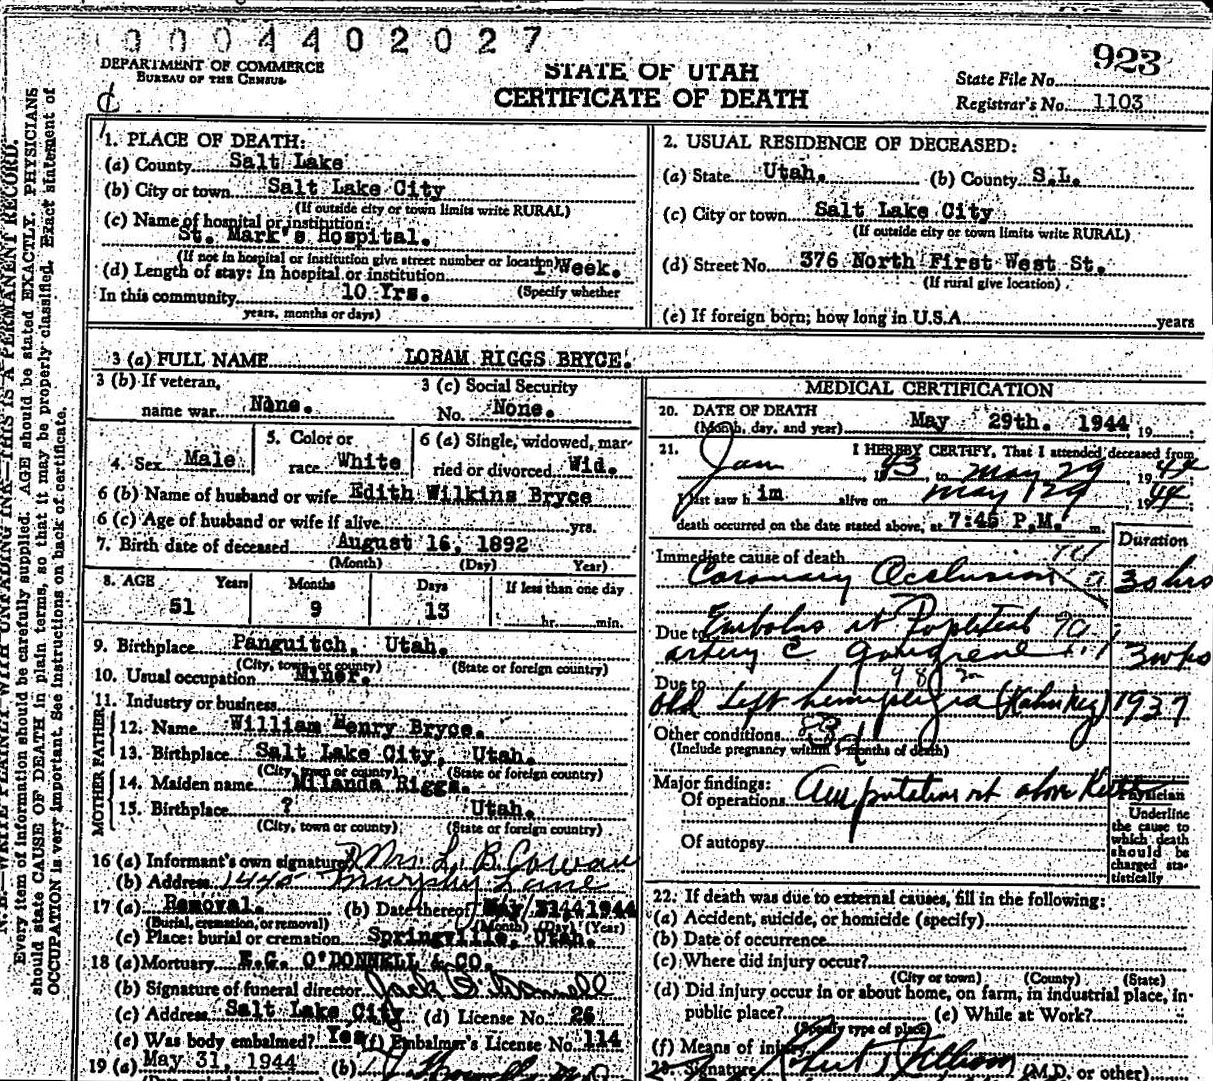 0004402027
923
DEPARTMENT OF COMMERCE
BUREAU OF THE CENSUS
STATE OF UTAH
CERTIFICATE OF DEATH
State File No.
Registrar's No. 1103
N. B.—WRITE PLAINLY WITH UNFADING INK—THIS IS A PERMANENT RECORD.
Every item of information should be carefully supplied. AGE should be stated EXACTLY. PHYSICIANS
should state CAUSE OF DEATH in plain terms, so that it may be properly classified. Exact statement of
OCCUPATION is very important. See instructions on back of certificate.
1. PLACE OF DEATH:
(a) County Salt Lake
(b) City or town Salt Lake City
(If outside city or town limits write RURAL)
(c) Name of hospital or institution
St. Mark's Hospital.
(If not in hospital or institution give street number or location)
(d) Length of stay: In hospital or institution 1 Week.
In this community 10 Yrs. (Specify whether
years, months or days)
2. USUAL RESIDENCE OF DECEASED:
(a) State Utah. (b) County S.L.
(c) City or town Salt Lake City
(If outside city or town limits write RURAL)
(d) Street No. 376 North First West St.
(If rural give location)
(e) If foreign born; how long in U.S.A. years
3 (a) FULL NAME LORAM RIGGS BRYCE.
3 (b) If veteran,
name war None.
3 (c) Social Security
No. None.
4. Sex Male
5. Color or
race White
6 (a) Single, widowed, mar-
ried or divorced Wid.
6 (b) Name of husband or wife Edith Wilkins Bryce
6 (c) Age of husband or wife if alive yrs.
7. Birth date of deceased August 16, 1892
(Month) (Day) Year)
8. AGE Years Months Days If less than one day
51 9 13 hr. min.
9. Birthplace Panguitch, Utah.
(City, town, or county) (State or foreign country)
10. Usual occupation Miner.
11. Industry or business
FATHER
12. Name William Henry Bryce.
13. Birthplace Salt Lake City, Utah.
(City, town or county) (State or foreign country)
MOTHER
14. Maiden name Milanda Riggs.
15. Birthplace ? Utah.
(City, town or county) (State or foreign country)
16 (a) Informant's own signature Mrs L. B. Cowan
(b) Address 1445 Murphy Lane
17 (a) Removal. (b) Date thereof May 31 1944
(Burial, cremation, or removal) (Month) (Day) (Year)
(c) Place: burial or cremation Springville, Utah.
18 (a) Mortuary E.G. O'DONNELL & CO.
(b) Signature of funeral director Jack O'Donnell
(c) Address Salt Lake City (d) License No. 26
(e) Was body embalmed? Yes (f) Embalmer's License No. 114
19 (a) May 31, 1944 (b)
MEDICAL CERTIFICATION
20. DATE OF DEATH
(Month, day, and year) May 29th. 1944, 19
21. I HEREBY CERTIFY, That I attended deceased from
Jan 43 to May 29 1944
I last saw him alive on May 29 1944
death occurred on the date stated above, at 7:45 P.M. m.
Duration
Immediate cause of death
Coronary Occlusion 30 hrs
Due to Embolus rt Popliteal
artery c gangrene 3 wks
Due to
old left hemiplegia (Kahn neg) 1937
Other conditions
(Include pregnancy within 3 months of death)
Major findings:
Of operations Amputation rt above Knee
Of autopsy
Physician
Underline
the cause to
which death
should be
charged sta-
tistically
22. If death was due to external causes, fill in the following:
(a) Accident, suicide, or homicide (specify)
(b) Date of occurrence
(c) Where did injury occur?
(City or town) (County) (State)
(d) Did injury occur in or about home, on farm, in industrial place, in-
public place? (e) While at Work?
(Specify type of place)
(f) Means of injury
23. Signature (M.D. or other)